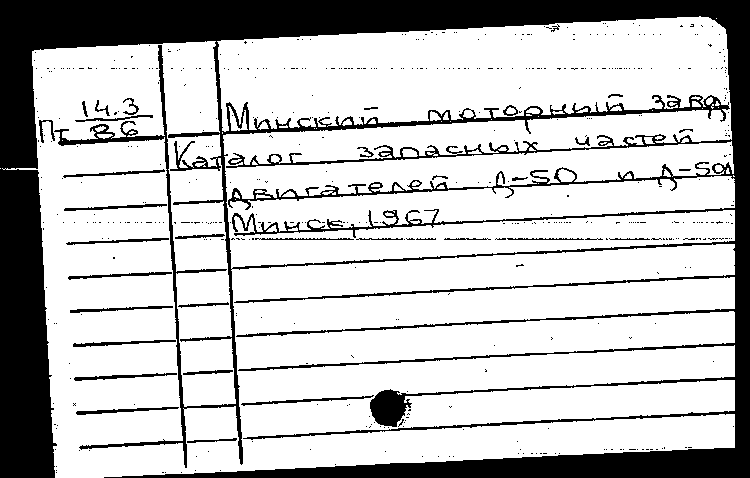 14.3
Пт 86
Минский моторный завод
Каталог запасных частей
двигателей Д-50 и Д-50Л
Минск, 1967